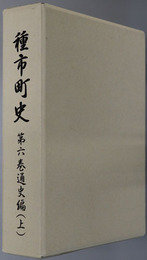 種市町史
第六巻通史編(上)